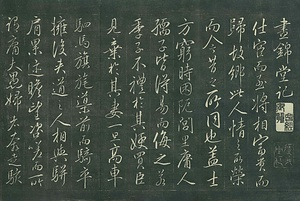 晝錦堂記
仕宦而至將相富貴而
歸故鄉此人情之所榮
而今昔之所同也蓋士
方窮時困阨閭里庸人
孺子皆得易而侮之若
季子不禮於其嫂買臣
見棄於其妻一旦高車
駟馬旗旄導前而騎卒
擁後夾道之人相與駢
肩累迹瞻望咨嗟而所
謂庸夫愚婦奔走駭